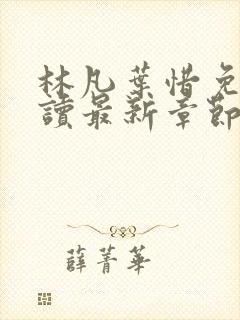 林凡葉惜免
讀最新章節
薛菁華